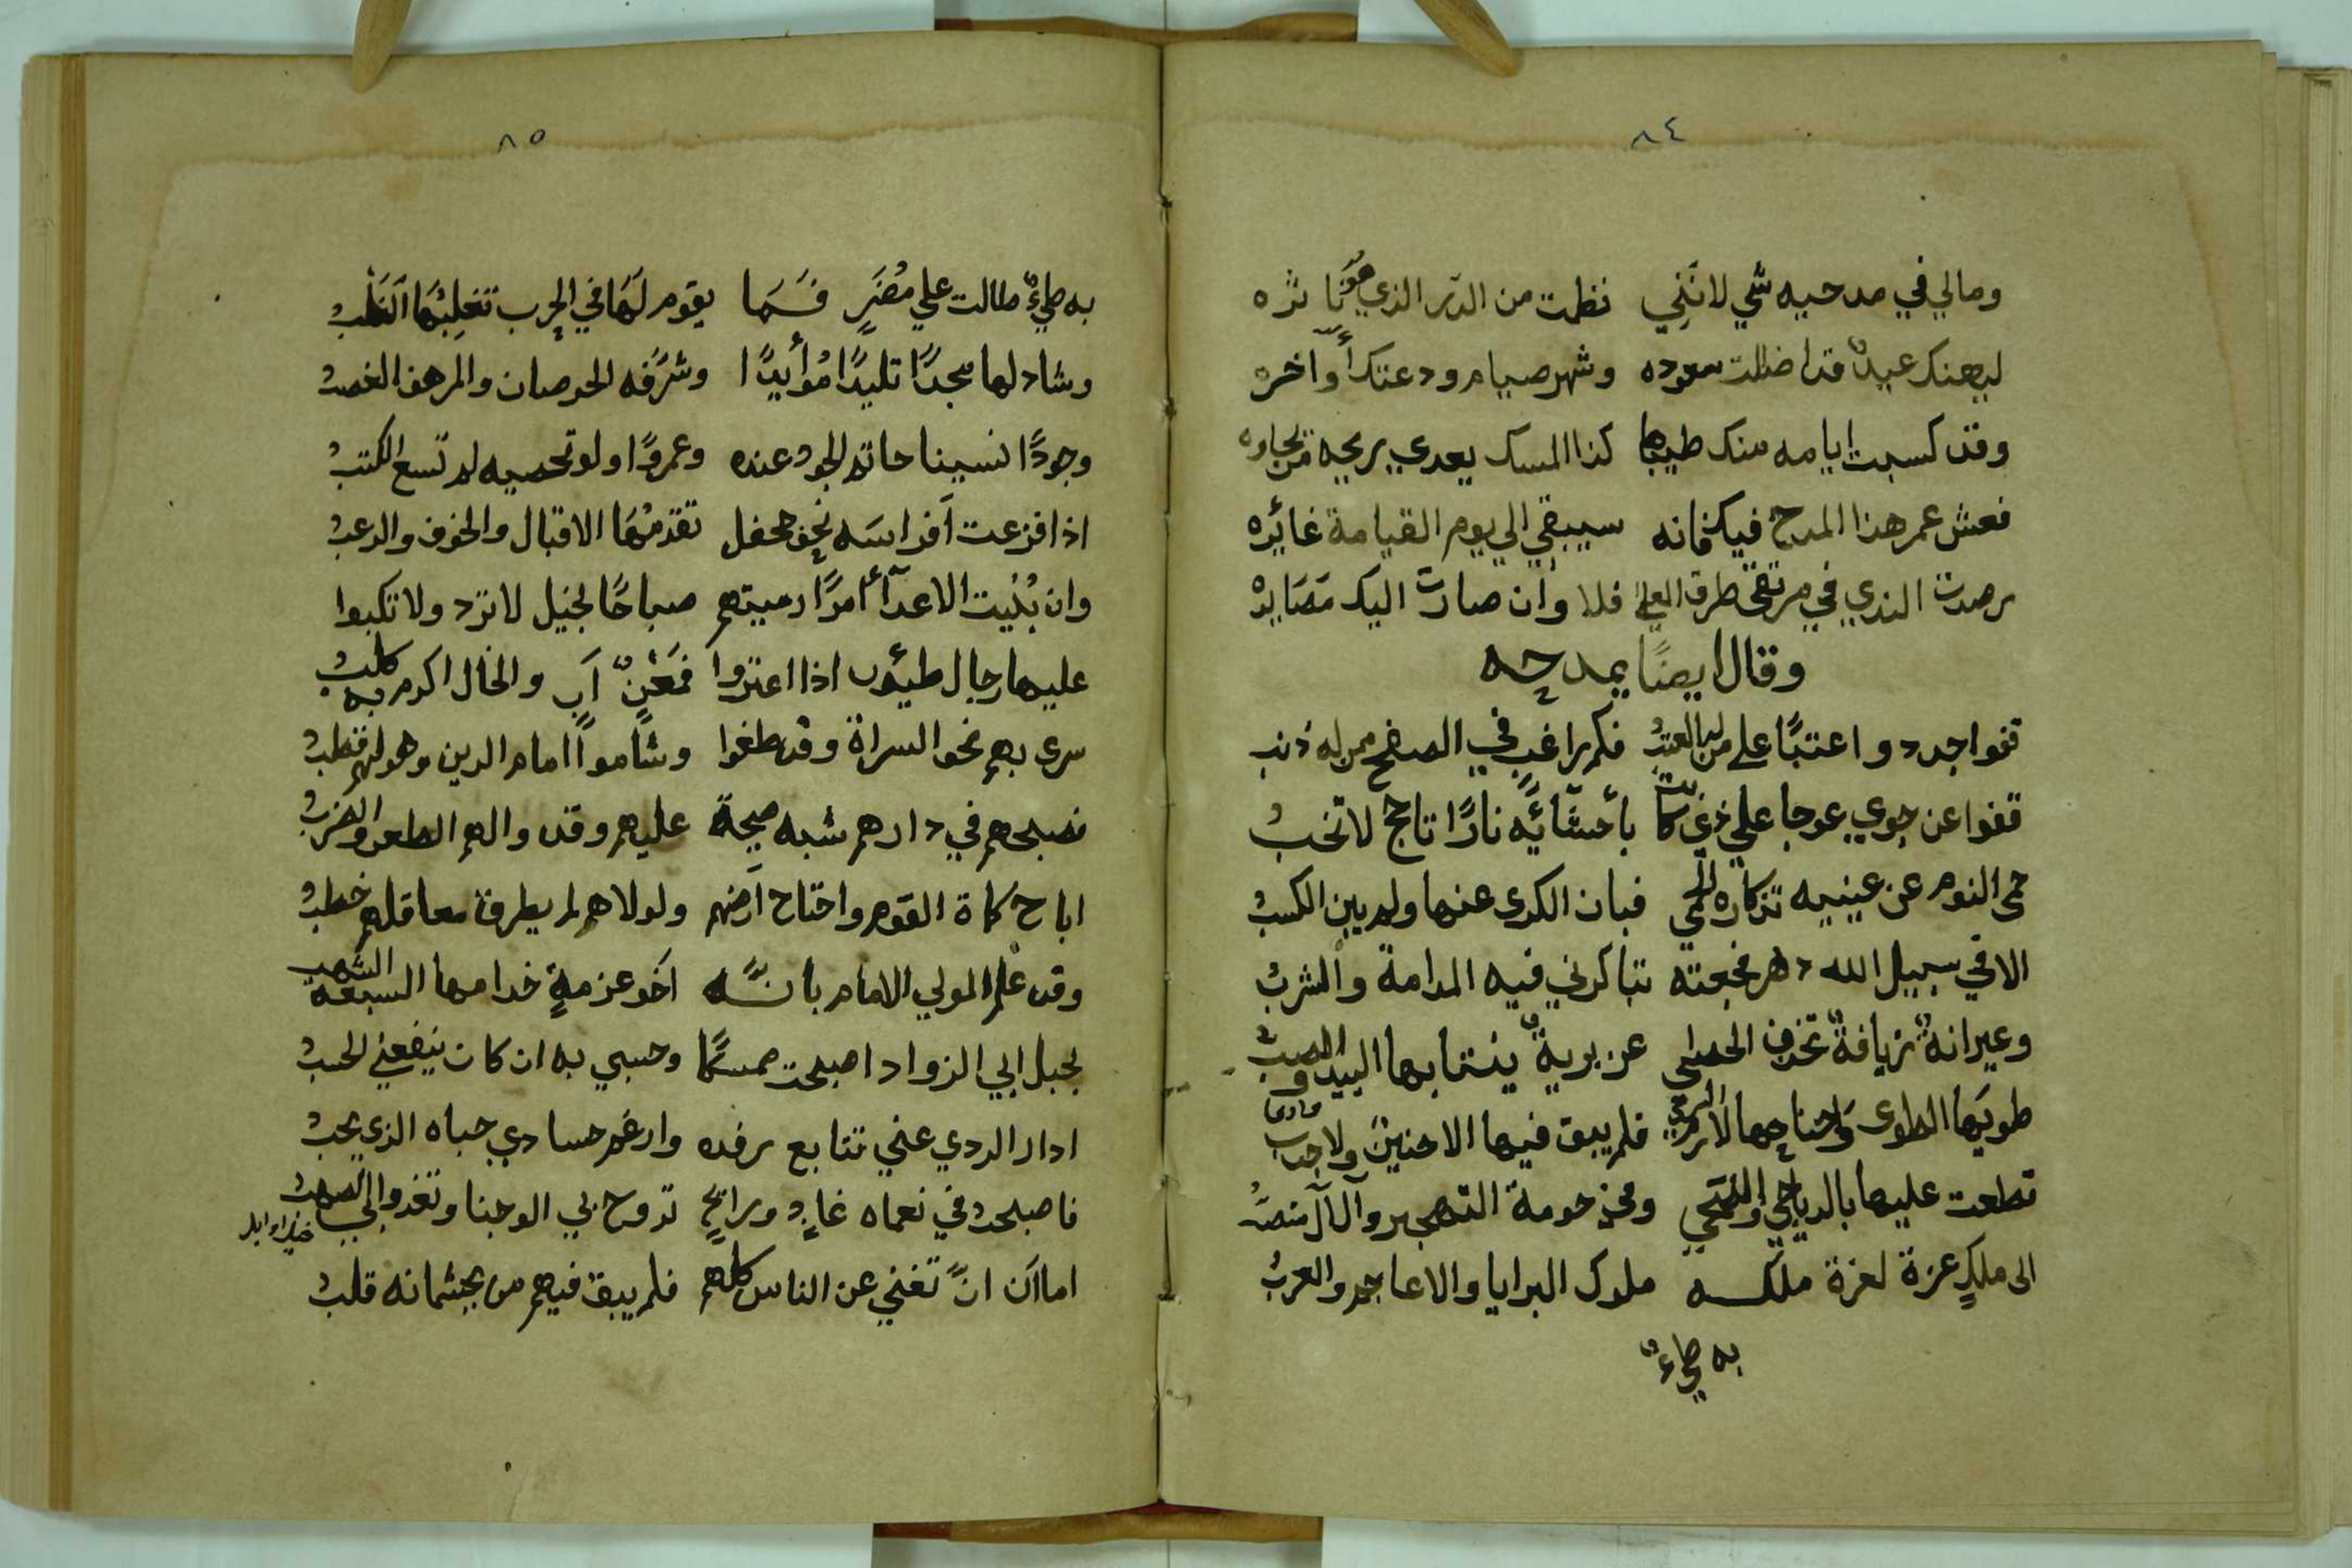 ٨٤
ومالي في مدحيه شي لانني نظمت من الدر الذي هو ناثره
ليهنك عيد قد اضلت سعوده وشهر صيام ودعتك أواخره
وقد كسبت ايامه منك طيبها كذا المسك يعدي بريحه من يجاوره
فعش عمر هذا المدح فيك فانه سيبقي الي يوم القيامة غائره
رصدت الندي في مرتقي طرق العلي فلا وان صارت اليك مَصَايره
وقال ايضًا يمدحه
قفوا جددوا عتبًا على من له العتبُ فكم راغبٍ في الصفح ممن له ذنب
قفوا عن جوي عوجا علي ذي بأحشآئه نارًا تاجج لا تخبُ
حمى النوم عن عينيه تذكاره الحمي فبان الكرى عنها ولم يبن الكسبُ
الا في سبيل الله دهر فجعته تباكرني فيه المدامة والشربُ
وعيرانةٌ زيافةٌ تخذف الحصى عزبريةٌ ينتابها البيد و
طويَها الطوى فلم يبق فيها الا حنين ولا جنب
قطعت عليها بالدياجي وفي حومة التهجير وآلال منصبُّ
الى ملكٍ عزة لعزة ملكه ملوك البرايا والاعاجم والعربُ
به طيءٌ
٨٥
به طيءٌ طالت علي مُضَرٍ فَسَمَا يقوم لهَا في الحرب تغلِبُهَا الغلب
وشاد لها مجدًا تليدًا مُؤأبدًا وشرَّفه الخرصان والمرهف العضبُ
وجودًا نسينا حاتم الجود عنده وعمروًا ولو تحصيه لم تسع الكتبُ
اذا فزعت أفراسَه نحو محفل تقدمُهَا الاقبال والخوف والرعبُ
وان بُيّت الاعدآء امرًا رميتهم صباحًا بخيل لا ترد ولا تكبوا
عليها رجال طيئون اذا اعتزوا فمَعْنٌ اَب والخال اكرم به كلبُ
سرى بهم نحو السراة وقد طغوا وشاموا امام الدين وهو لهم قطبُ
فصبحهم في دارهم شبه صيحة عليهم وقد والهم الطعن والضربُ
اباح كماة القوم واجتاح اَرضهم ولولاهم لم يطرق معاقلهم خطبُ
وقد علم المولي الامام بانّه اَخو عزمةٍ خدامها السبعة الشهب
بحبل ابي الزواد اصبحت ممسكًا وحسبي به ان كان ينفعني الحسبُ
ادار الردي عني تتابع رفده وارغم حسادي حباه الذي يحبُ
فاصبحت في نعماه غادٍ ورائحٍ تروح بي الوجنا وتغدوا بي الصهبُ
اما آن انّ تغني عن الناس كلهم فلم يبق فيهم من بجثمانه قلبُ